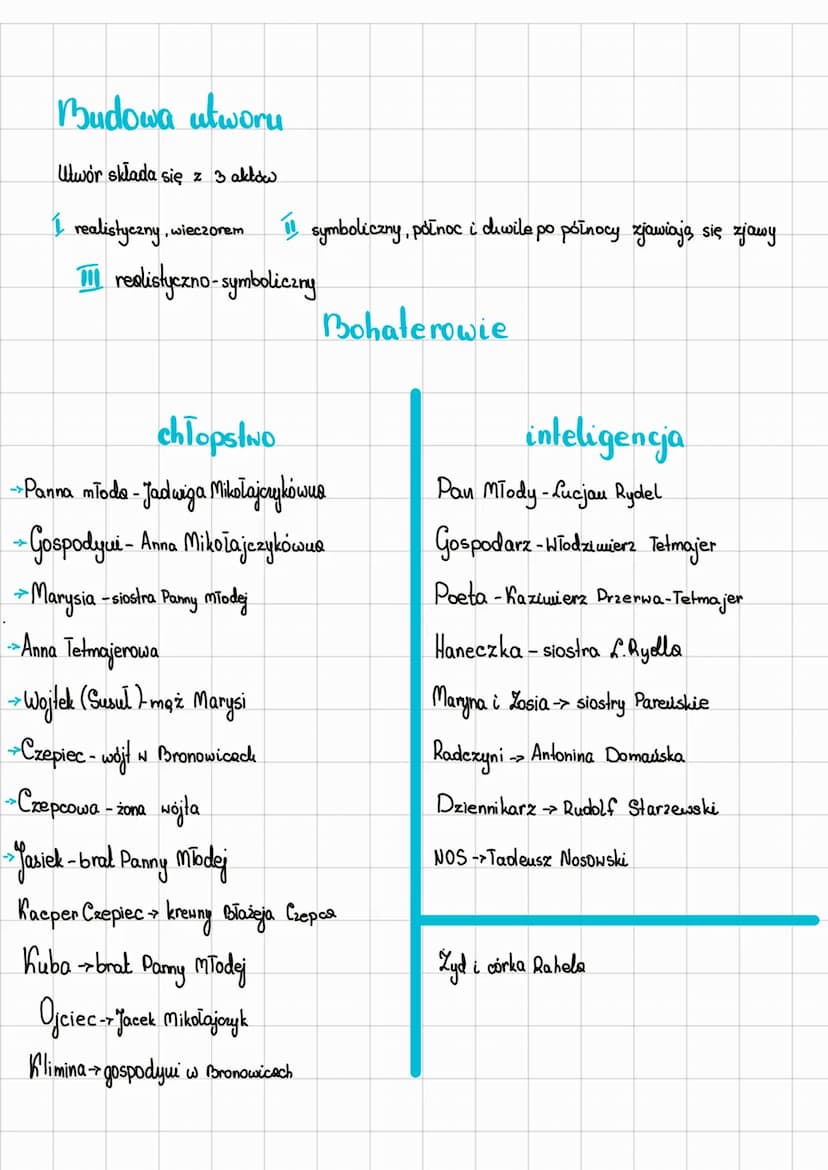 Budowa utworu
Utwór składa się z 3 aktów
I realistyczny, wieczorem II symboliczny, północ i chwile po północy zjawiają się zjawy
III realistyczno-symboliczny
Bohaterowie
chłopstwo
→Panna młoda - Jadwiga Mikołajczykówna
→Gospodyni - Anna Mikołajczykówna
→Marysia - siostra Panny młodej
→Anna Tetmajerowa
→Wojtek (Susuł) - mąż Marysi
→Czepiec - wójt w Bronowicach
→Czepcowa - żona wójta
→Jasiek - brat Panny Młodej
Kacper Czepiec → krewny Błażeja Czepca
Kuba → brat Panny Młodej
Ojciec → Jacek Mikołajczyk
Klimina → gospodyni w Bronowicach
inteligencja
Pan Młody - Lucjan Rydel
Gospodarz - Włodzimierz Tetmajer
Poeta - Kazimierz Przerwa-Tetmajer
Haneczka - siostra L.Rydla
Maryna i Zosia → siostry Pareńskie
Radczyni → Antonina Domańska
Dziennikarz → Rudolf Starzewski
NOS → Tadeusz Nosowski
Żyd i córka Rahela